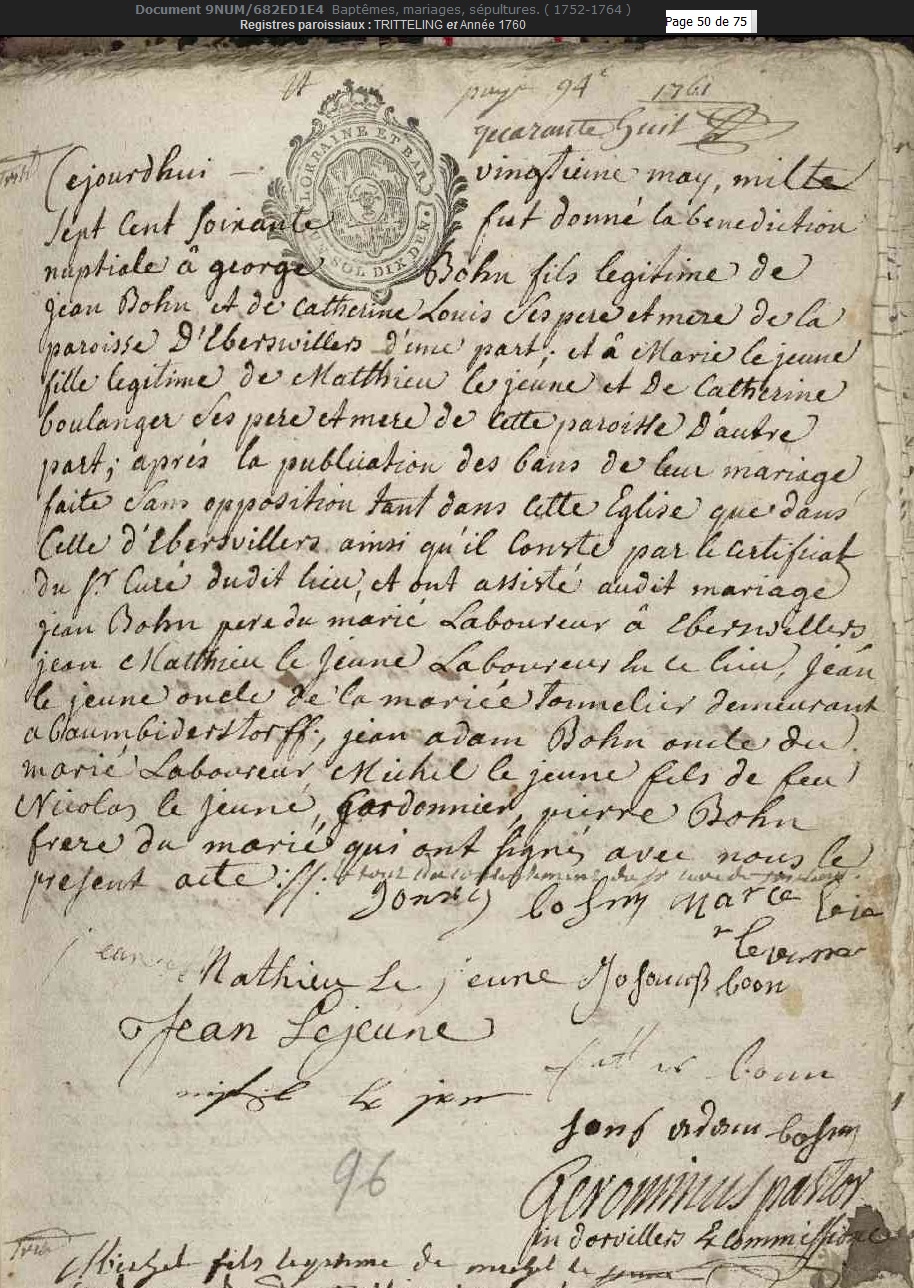 Document 9NUM/682ED1E4 Baptêmes, mariages, sépultures. ( 1752-1764 )
Registres paroissiaux : TRITTELING et Année 1760
Page 50 de 75
page 94e 1761
quarante huit
Cejourdhui vingtieme may, mille
LORRAINE ET BAR
SOL DIX DEN.
Sept Cent Soixante fut donné la benediction
nuptiale â george Bohn fils legitime de
jean Bohn et de Catherine Louis Ses pere et mere de la
paroisse D'Eberswillers d'une part; et â Marie le jeune
fille legitime de Matthieu le jeune et De Catherine
boulanger Ses pere et mere de Cette paroisse D'autre
part; aprés la publication des bans de leur mariage
faite Sans opposition tant dans Cette Eglise que dans
Celle d'Ebersvillers ainsi qu'il Conste par le Certificat
du Sr Curé dudit lieu, et ont assisté audit mariage
jean Bohn pere du marié Laboureur â Eberswillers
jean Matthieu le Jeune Laboureur du ce lieu, Jean
le jeune oncle de la mariée tonnelier demeurant
a baumbiderstorff, jean adam Bohn oncle du
marié Laboureur, Michel le jeune fils de feu
Nicolas le jeune, Cordonnier, pierre Bohn
frere du marié qui ont signés avec nous le
present acte ://:
bohn Marie leje
le jeune
jean Mathieu Le jeune Johannes boon
Jean Lejeune
michel le jeun
bonn
adam bohn
96
Gerominus pastor
in dorvillers & commissione
Michel fils legitime de michel le jeune